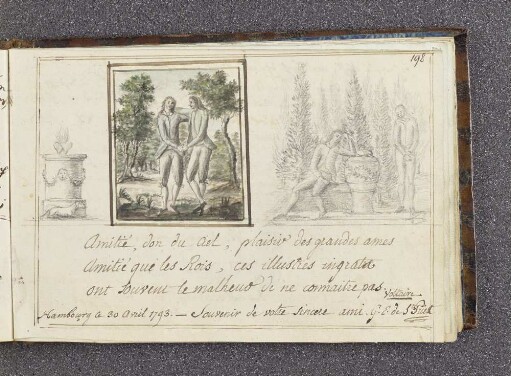 198
Amitié, don du ciel, plaisir des grandes ames
Amitié que les Rois, ces illustres ingrats
ont souvent le malheur de ne connaitre pas.
Voltaire
Hambourg a 30 Avril 1793. — Souvenir de votre sincere ami. G. de